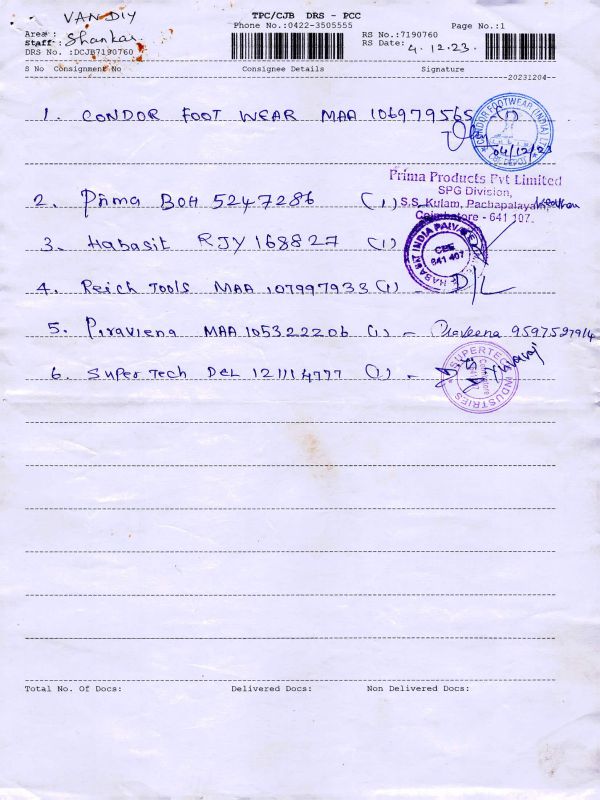 VAN DIY
TPC/CJB DRS - PCC
Phone No.:0422-3505555
Page No.:1
Area :
RS No.:7190760
Staff: Shankar
RS Date: 4.12.23.
DRS No. :DCJB7190760
S No Consignment No Consignee Details Signature
20231204--
1. CONDOR FOOT WEAR MAA 106979565 (1)
CONDOR FOOTWEAR (INDIA) LTD
04/12/23
Prima Products Pvt Limited
SPG Division,
2. Prima BOH 5247286 (1) - S.S. Kulam, Pachapalayam,
Coimbatore - 641 107.
3. Habasit RJY 168827 (1)
HABASIT INDIA
CBE
641 407
4. Reich Tools MAA 107997933 (1) - D/L
5. Piraviena MAA 105322206 (1) - Praveena 9597527914
6. Super Tech DEL 121114777 (1) -
SUPERTECH INDUSTRIES
Coimbatore
Total No. Of Docs: Delivered Docs: Non Delivered Docs: